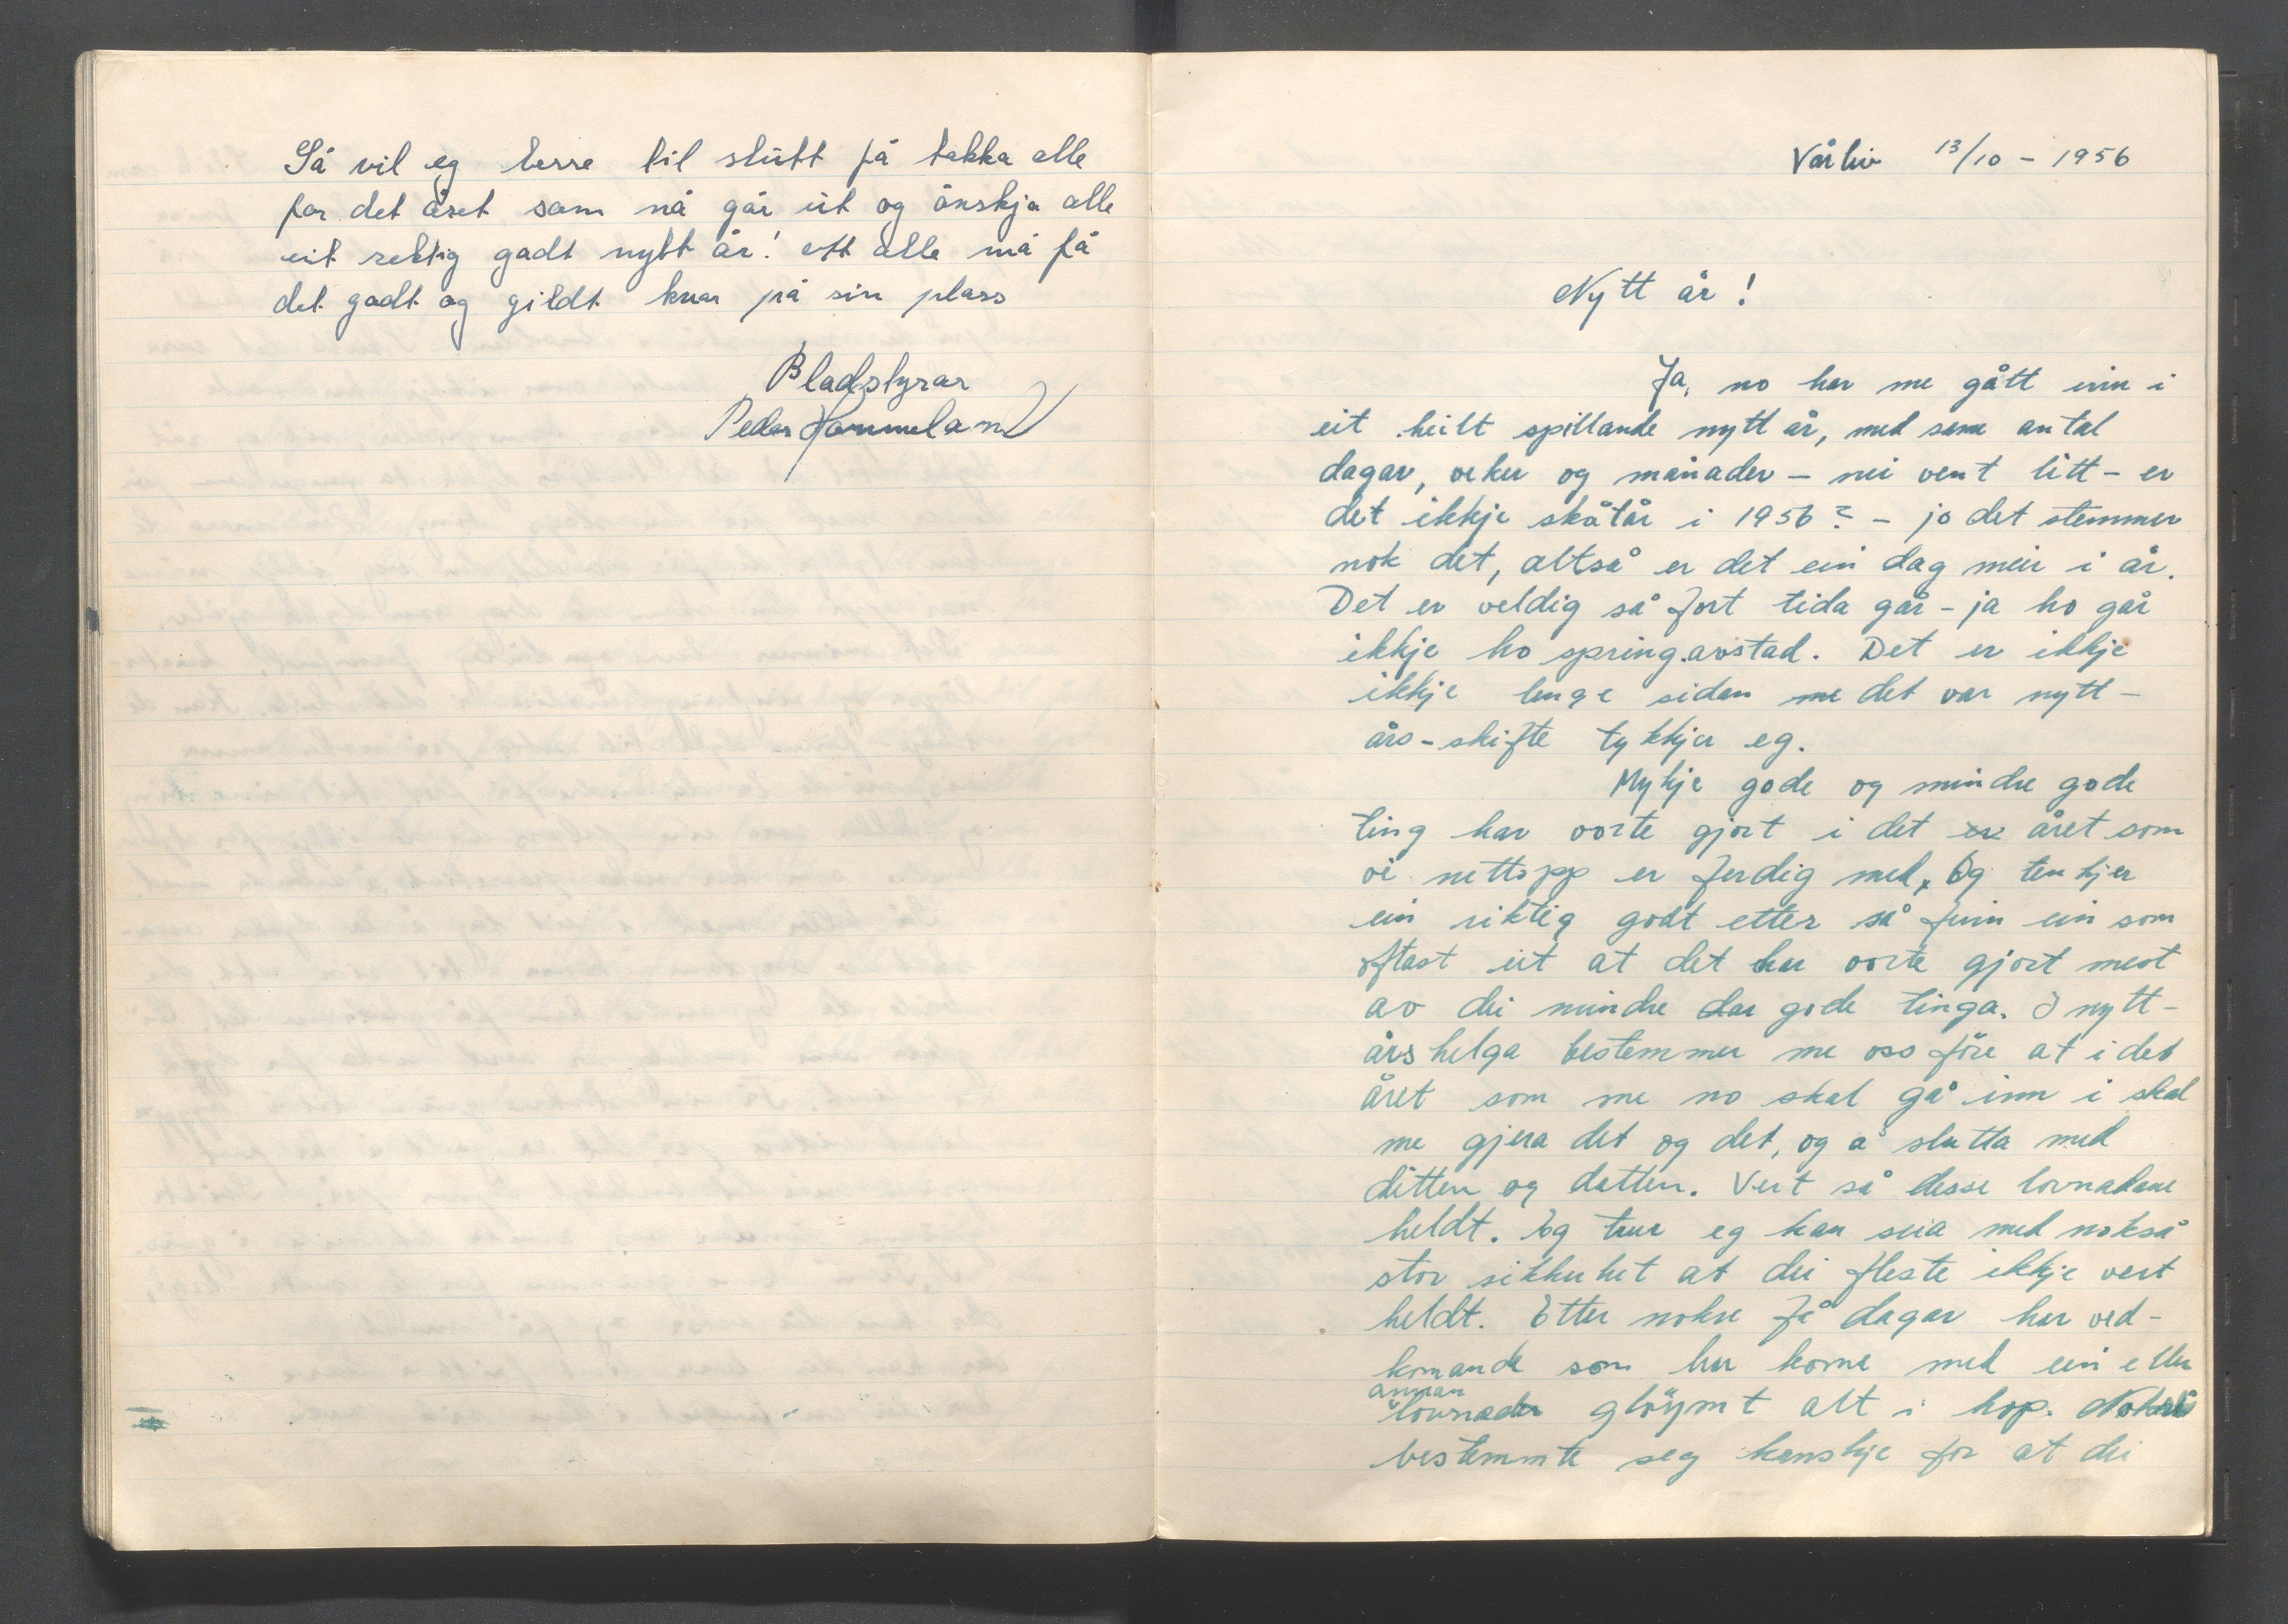 Så vil eg berre til slutt få takka alle
for det året som nå går ut og ønskja alle
eit rektig godt nytt år! Att alle må få
det godt og gildt kvar på sin plass
Bladstyrar
Peder Hommeland
Vårliv 13/10 - 1956
Nytt år!
Ja, no har me gått inn i
eit heilt spillande nytt år, med same antal
dagar, veker og månader - nei vent litt - er
det ikkje skåtår i 1956? - jo det stemmer
nok det, altså er det ein dag meir i år.
Det er veldig så fort tida går - ja ho går
ikkje ho spring.avstad. Det er ikkje
ikkje lenge sidan me det var nytt-
års-skifte tykkjer eg.
Mykje gode og mindre gode
ting har vorte gjort i det er året som
vi nettopp er ferdig med, Og tenkjer
ein riktig godt etter så finn ein som
oftast ut at det har vorte gjort mest
av dei mindre dar gode tinga. I nytt-
års helga bestemmer me oss føre at i det
året som me no skal gå inn i skal
me gjera det og det, og å slutta med
ditten og datten. Vert så desse lovnadane
heldt. Eg trur eg kan seia med nokså
stor sikkerhet at dei fleste ikkje vert
heldt. Etter nokre få dagar har ved-
komande som har kome med ein eller
annan
lovnader gløymt alt i hop. Nokre
bestemmte seg kanskje for at dei